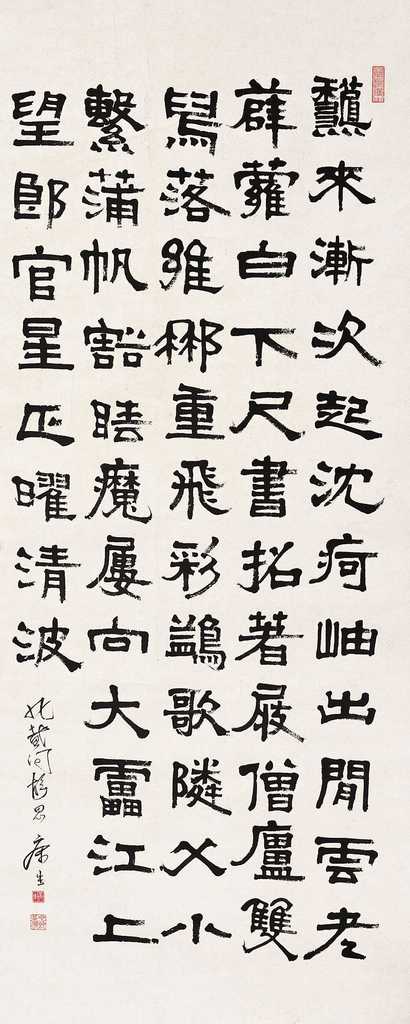 龝來漸次起沈疴岫出閒雲老
薜蘿白下尺書招著屐僧廬雙
舄落維那重飛彩鷁歌隣父小
繫蒲帆豁睛魔屢向大靁江上
望郎官星正曜清波
康生